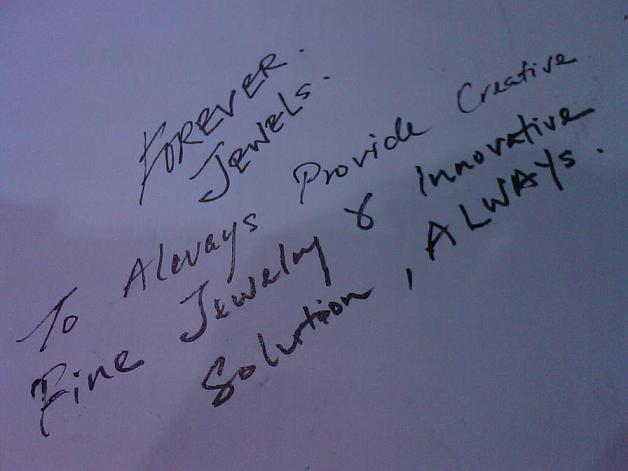 FOREVER.
JEWELS.
To Always Provide Creative
Fine Jewelry & Innovative
Solution, ALWAYS.